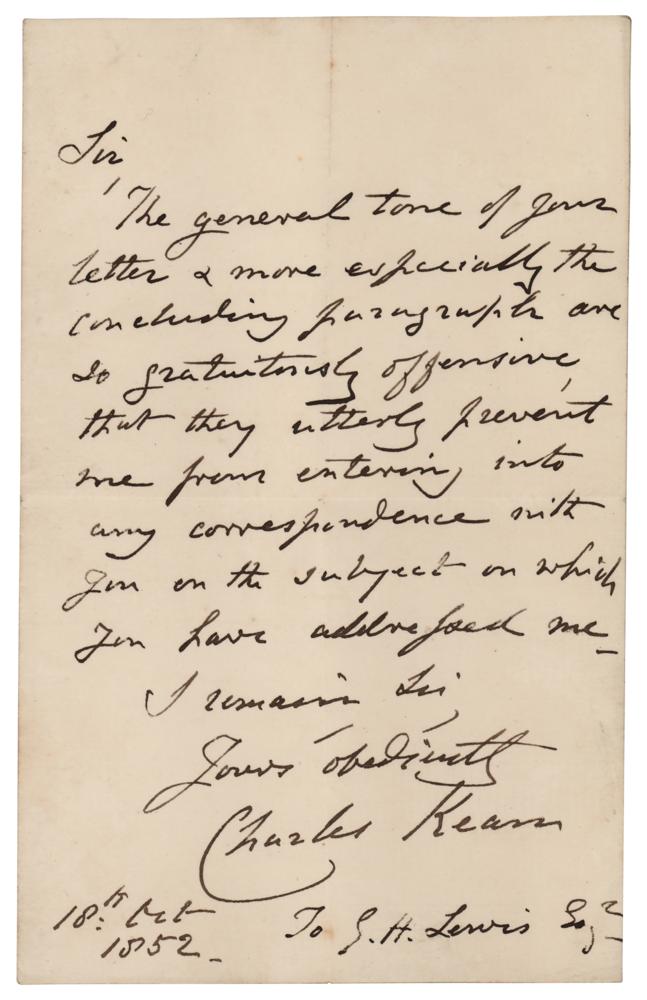 Sir
The general tone of your
letter & more especially the
concluding paragraph are
so gratuitously offensive,
that they utterly prevent
me from entering into
any correspondence with
you on the subject on which
you have addressed me_
I remain Sir,
Yours obediently
Charles Kean
18.th Oct
1852_
To G. H. Lewis Esqr